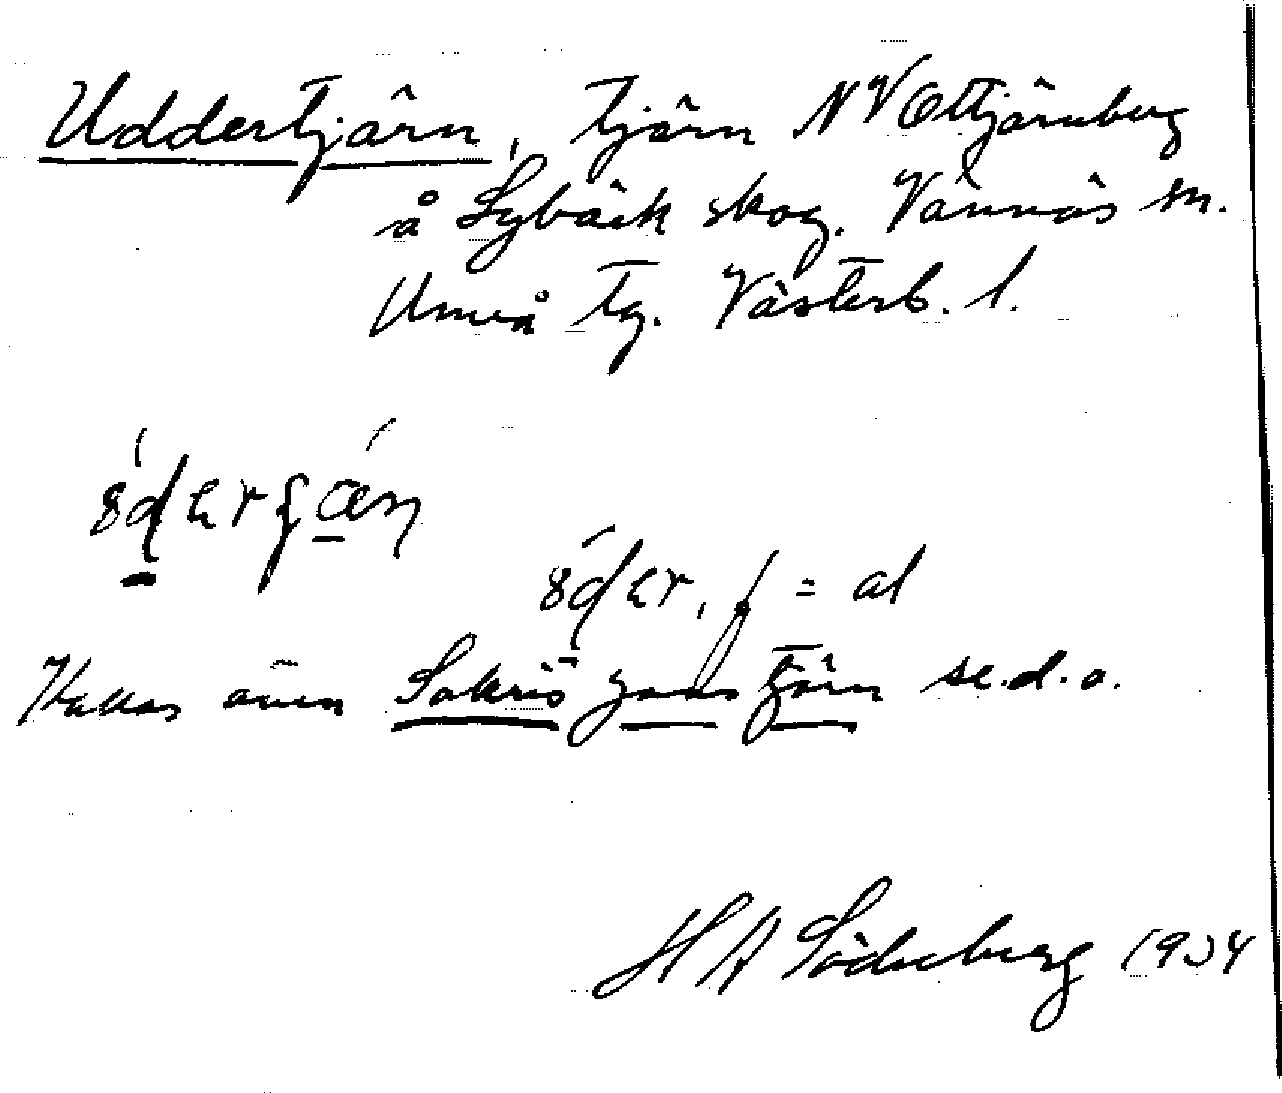 Uddertjärn, tjärn NV Ottjärnberg
å Sybäck skog. Vännäs sn.
Umeå tg. Västerb. l.
= al
Kallas även Sakris jans tjärn se.d.o.
H A Söderberg 1934